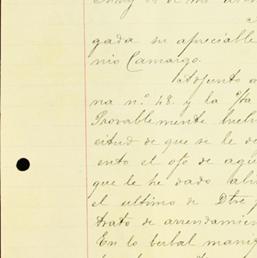 gada su apreciable
nio Camargo.
Adjunto a
na nº 48. y la
Provablemente
citud de que se le de
ento el ojo de agu
que le he dado
el ultimo de Dbre
trato de arrendamien
En lo berbal